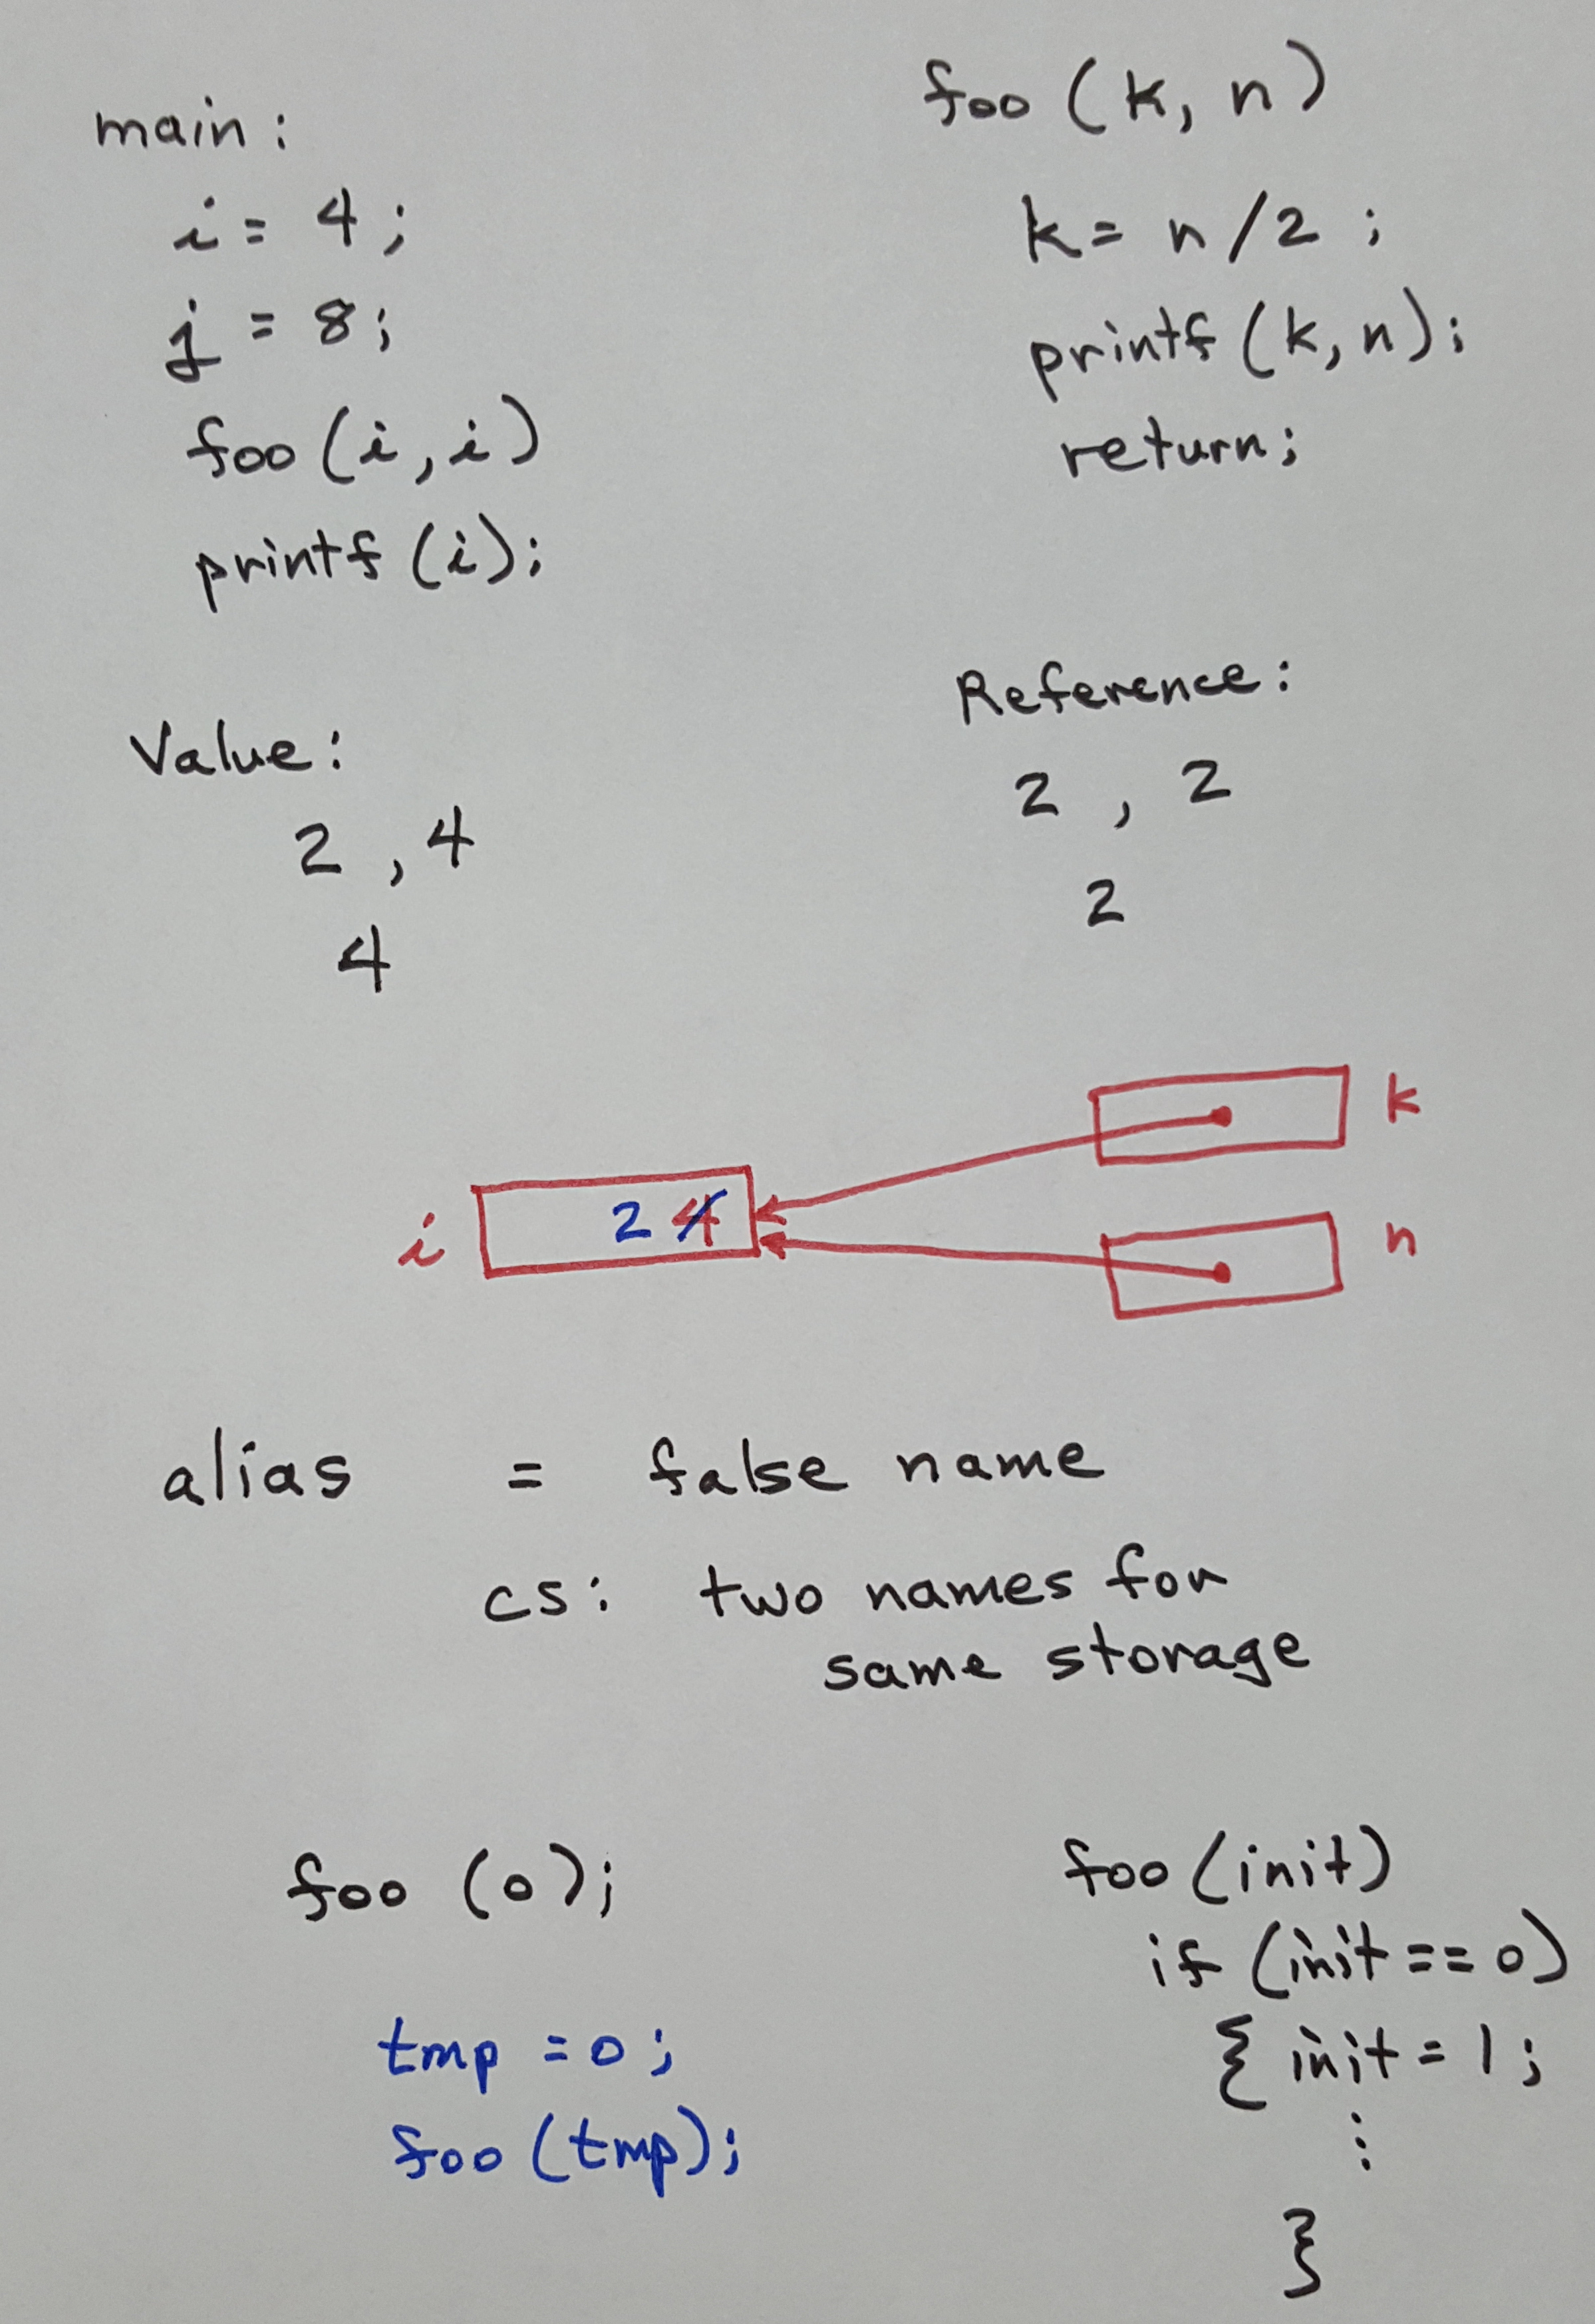 main:
i = 4;
j = 8;
foo (i, i)
printf (i);
foo (k, n)
k = n/2 ;
printf (k, n);
return;
Value:
2 , 4
4
Reference:
2 , 2
2
i
2 4
k
n
alias = false name
cs: two names for
same storage
foo (0);
tmp = 0;
foo (tmp);
foo (init)
if (init == 0)
{ init = 1;
:
}